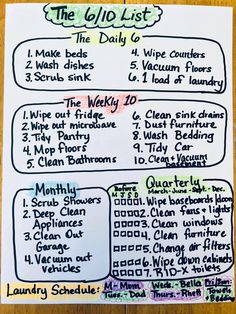 The 6/10 List
The Daily 6
1. Make beds
2. Wash dishes
3. Scrub sink
4. Wipe Counters
5. Vacuum floors
6. 1 load of laundry
The Weekly 10
1. Wipe out fridge
2. Wipe out microwave
3. Tidy Pantry
4. Mop floors
5. Clean Bathrooms
6. Clean sink drains
7. Dust furniture
8. Wash Bedding
9. Tidy Car
10. Clean & Vacuum basement
Monthly
1. Scrub Showers
2. Deep Clean
Appliances
3. Clean Out
Garage
4. Vacuum out
vehicles
Quarterly
Before March-June-Sept.-Dec.
M J S D
1. Wipe baseboards/doors
2. Clean fans & lights
3. Clean windows
4. Clean furniture
5. Change air filters
6. Wipe down cabinets
7. RID-X toilets
Laundry Schedule:
M- Mom
Tues.- Dad
Weds.- Bella
Thurs.- Rhett
Towels
Bedding